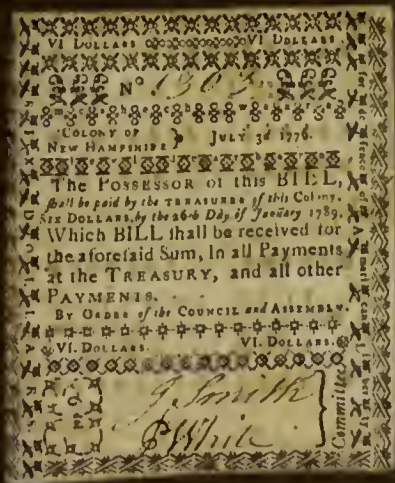 VI DOLLARS VI DOLLARS
No 1303
COLONY OF
NEW HAMPSHIRE } JULY 3d 1776.
The POSSESSOR of this BILL,
ſhall be paid by the TREASURER of this Colony,
SIX DOLLARS, by the 26th Day of January 1789.
Which BILL ſhall be received for
the aforeſaid Sum, In all Payments
at the TREASURY, and all other
PAYMENTS.
BY ORDER of the COUNCIL and ASSEMBLY.
VI. DOLLARS. VI. DOLLARS.
J. Smith
P White
Committee